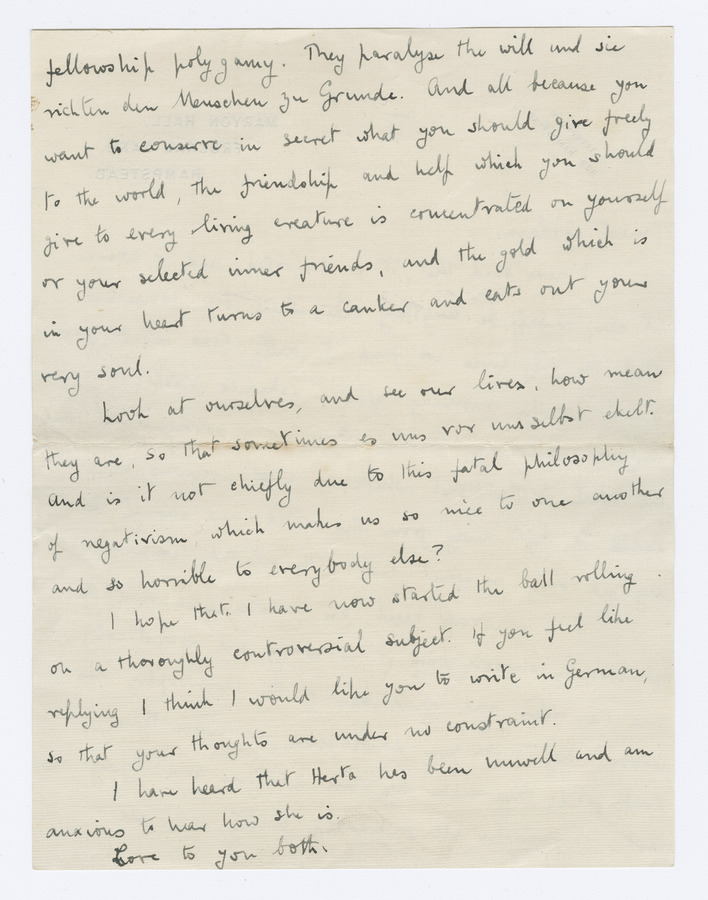 fellowship polygamy. They paralyse the will und sie
richten den Menschen zu Grunde. And all because you
want to conserve in secret what you should give freely
to the world, the friendship and help which you should
give to every living creature is concentrated on yourself
or your selected inner friends, and the gold which is
in your heart turns to a canker and eats out your
very soul.
Look at ourselves, and see our lives, how mean
they are, so that sometimes es uns vor uns selbst ekelt.
And is it not chiefly due to this fatal philosophy
of negativism, which makes us so nice to one another
and so horrible to everybody else?
I hope that I have now started the ball rolling
on a thoroughly controversial subject. If you feel like
replying I think I would like you to write in German,
so that your thoughts are under no constraint.
I have heard that Herta has been unwell and am
anxious to hear how she is.
Love to you both.
MARYON HALL
HAMPSTEAD